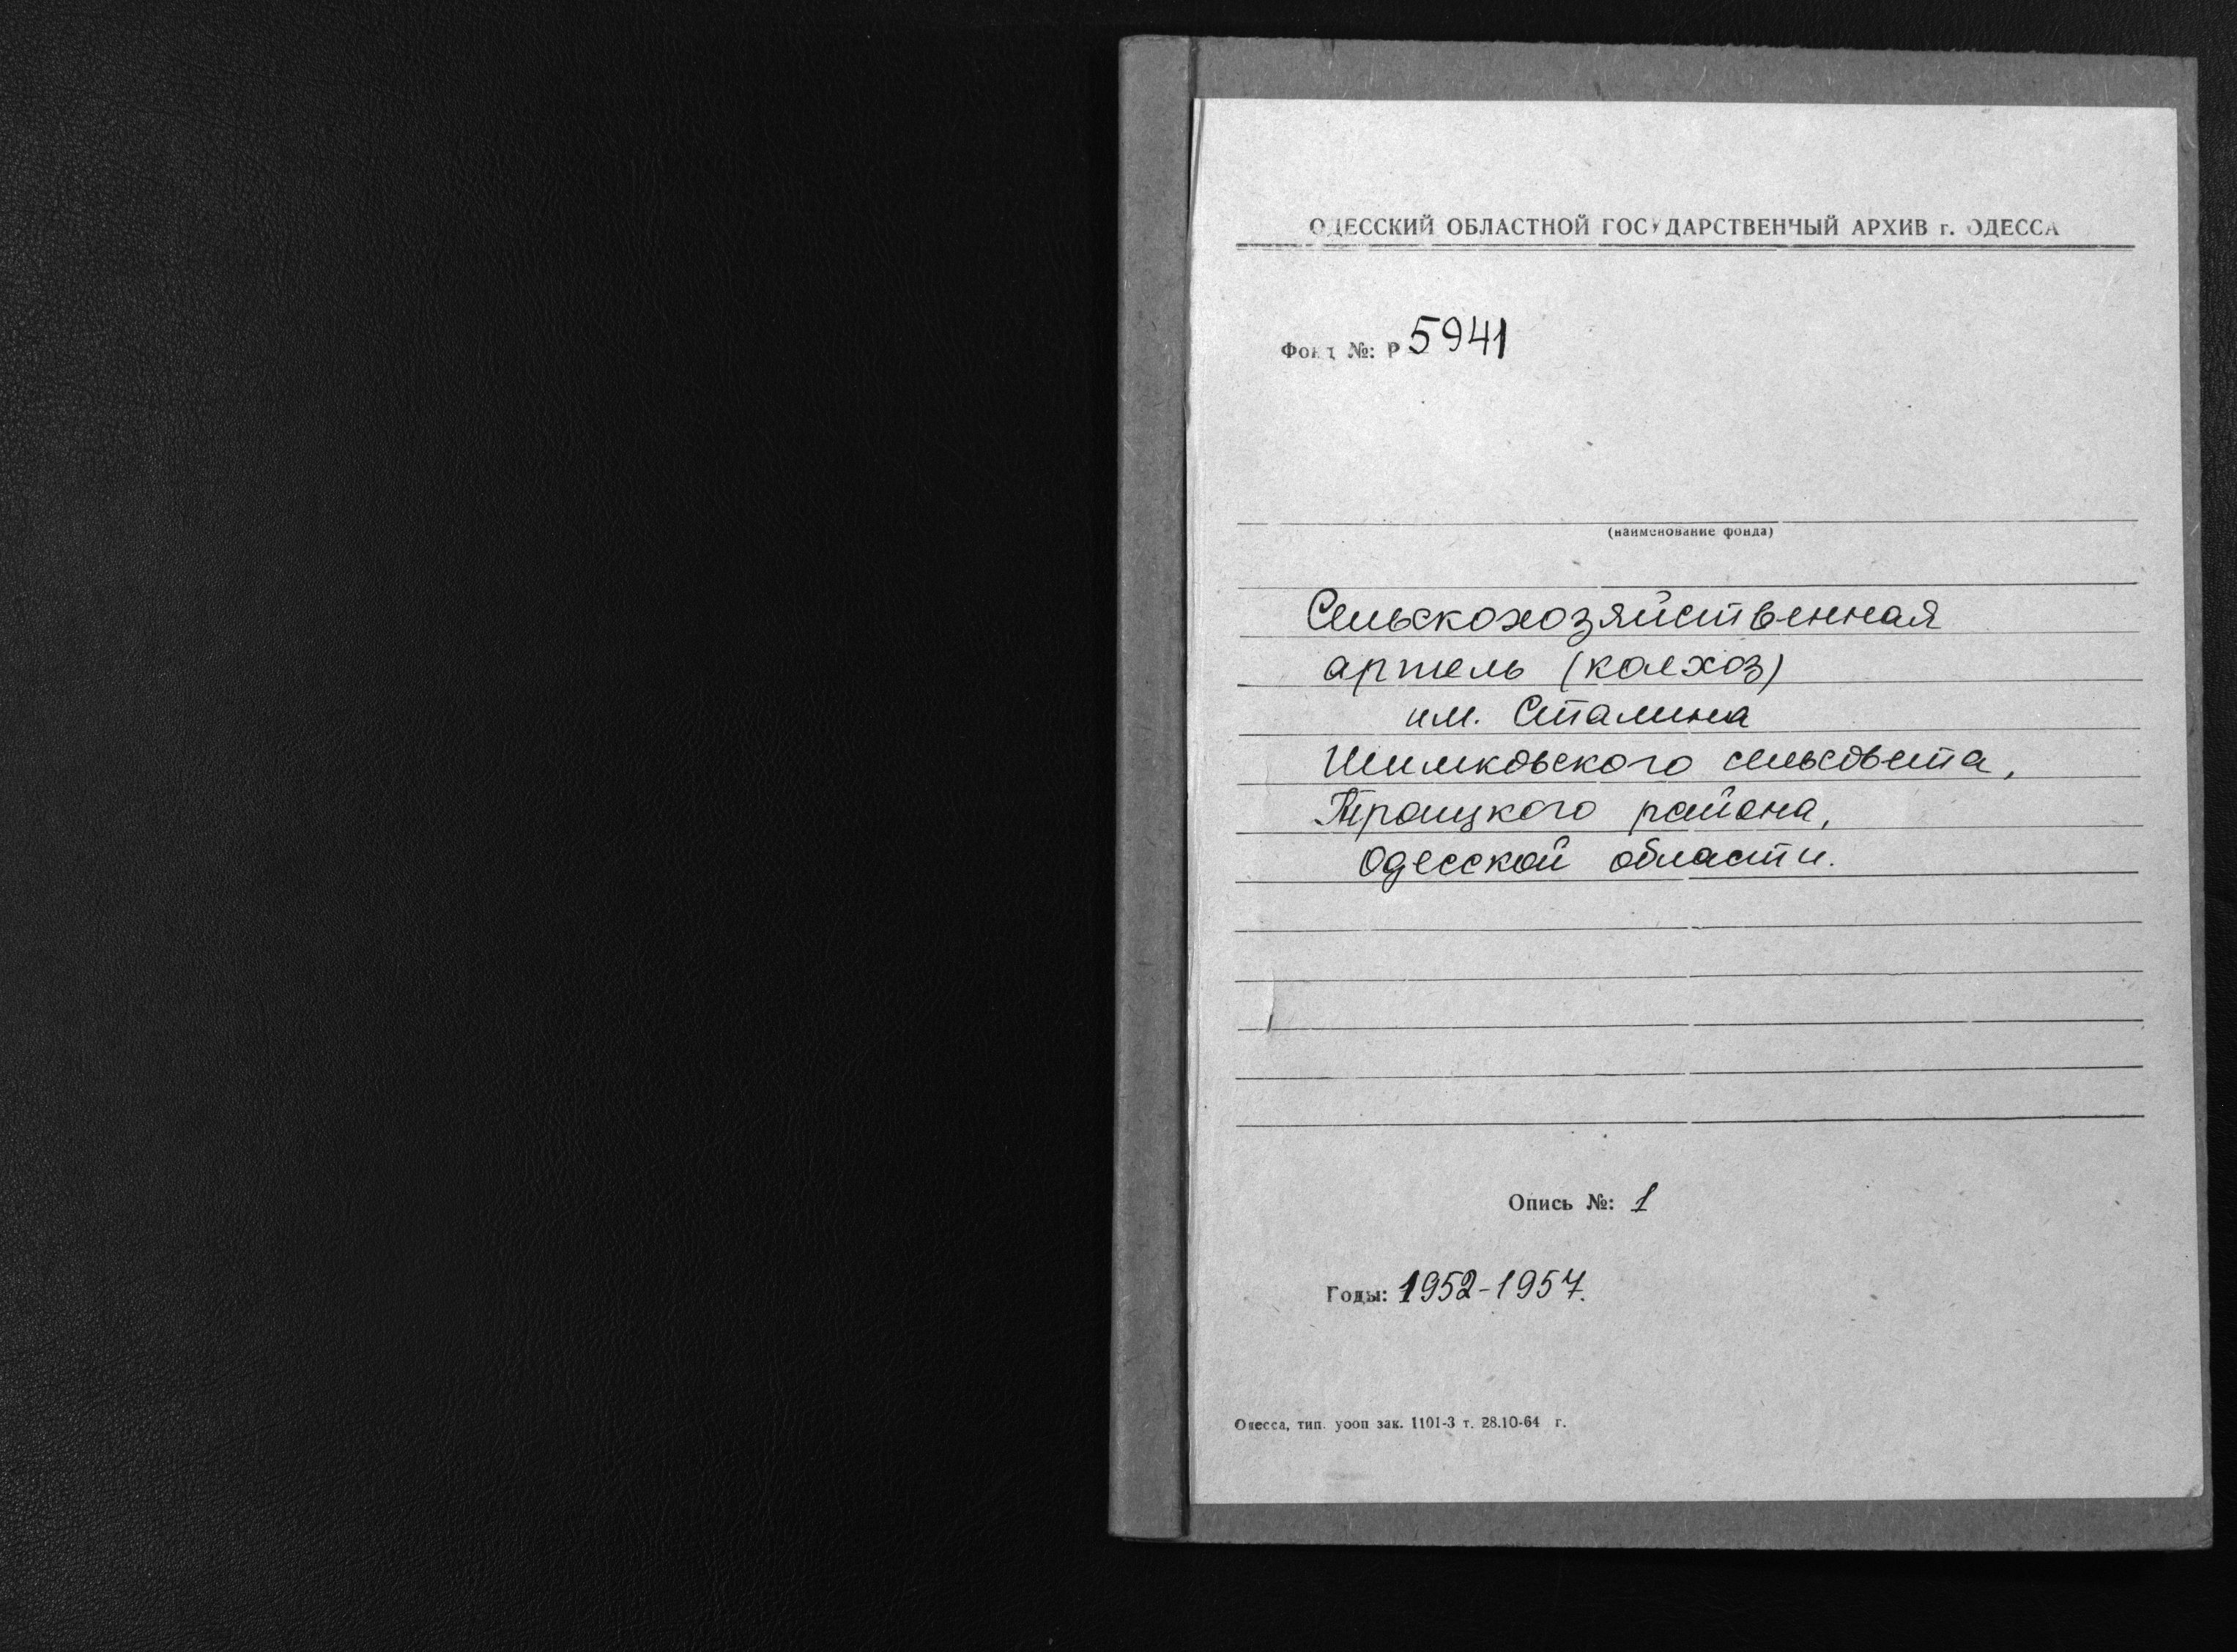 ОДЕССКИЙ ОБЛАСТНОЙ ГОСУДАРСТВЕННЫЙ АРХИВ г. ОДЕССА
Фонд №: Р 5941
(наименование фонда)
Сельскохозяйственная
артель (колхоз)
им. Сталина
Шимковского сельсовета,
Троицкого района,
Одесской области.
Опись №: 1
Годы: 1952-1957.
Одесса, тип. уооп зак. 1101-3 т. 28.10-64 г.